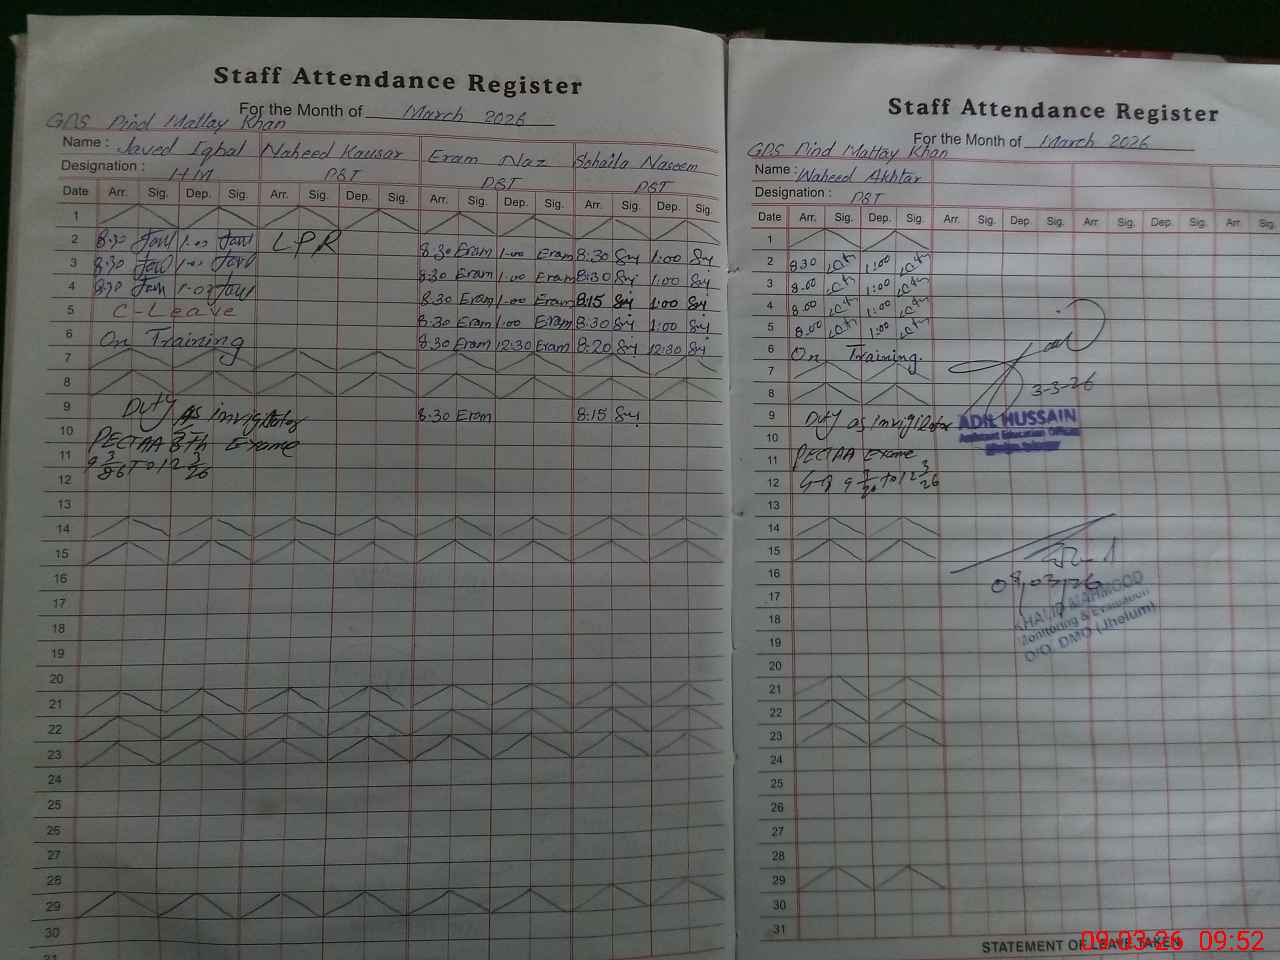 Staff Attendance Register
For the Month of March 2026
GPS Pind Mattay Khan
Name : Javed Iqbal Naheed Kausar Eram Naz Sohaila Naseem
Designation : HM PST PST PST
Date Arr. Sig. Dep. Sig. Arr. Sig. Dep. Sig. Arr. Sig. Dep. Sig. Arr. Sig. Dep. Sig.
1
2 8:30 1-00 LPR 8:30 Eram 1-00 Eram 8:30 1:00
3 8:30 1-00 8:30 Eram 1-00 Eram 8:30 1:00
4 8:30 1-00 8:30 Eram 1-00 Eram 8:15 1:00
5 C-Leave 8:30 Eram 1:00 Eram 8:30 1:00
6 On Training 8:30 Eram 12:30 Eram 8:20 12:30
7
8
9 Duty as invigilator 8:30 Eram 8:15
10 PECTAA 8th Exame
11 9 3/26 To 12 3/26
12
13
14
15
16
17
18
19
20
21
22
23
24
25
26
27
28
29
30
31
Staff Attendance Register
For the Month of March 2026
GPS Pind Mattay Khan
Name : Waheed Akhtar
Designation : PST
Date Arr. Sig. Dep. Sig. Arr. Sig. Dep. Sig. Arr. Sig. Dep. Sig. Arr. Sig.
1
2 8:30 1:00
3 8:00 1:00
4 8:00 1:00
5 8:00 1:00
6 On Training.
7
8 3-3-26
9 Duty as invigilator ADIL HUSSAIN
10 Assistant Education Officer
11 PECTAA Exame
12 9 3/26 to 12 3/26
13
14
15
16 09,03,26
17 KHALID MAHMOOD
18 Monitoring & Evaluation
19 O/O, DMO (Jhelum)
20
21
22
23
24
25
26
27
28
29
30
31
STATEMENT OF LEAVE TAKEN
09-03-26 09:52